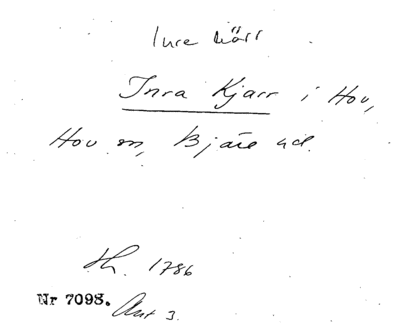 Inre Kärr
Inra Kjarr i Hov,
Hov sn, Bjäre hd.
Sh. 1786
Nr 7098. Akt 3.